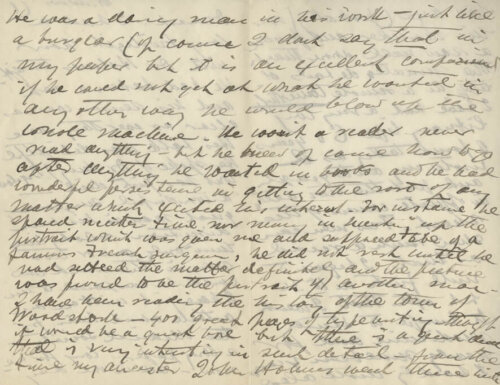 He was a daring man in his work – just like
a burglar (of course I dont say that in
my paper but it is an excellent comparison
if he could not get at what he wanted in
any other way he would blow up the
whole machine. He wasnt a reader never
read anything but he knew of course how to go
after anything he wanted in books and he had
wonderful persistence in getting to the root of any
matter which excited his interest. For instance he
spared neither time nor money in hunting up the
portrait which was given me and supposed to be of a
famous French surgeon, he did not rest until he
had settled the matter definitely and the picture
was proved to be the portrait of another man –
I have been reading the history of the town of
Woodstock – 400 great pages of type writing though
it would be a quick one but there is a great deal
that is very interesting in such detail – from the
time my ancestor John Holmes went there with